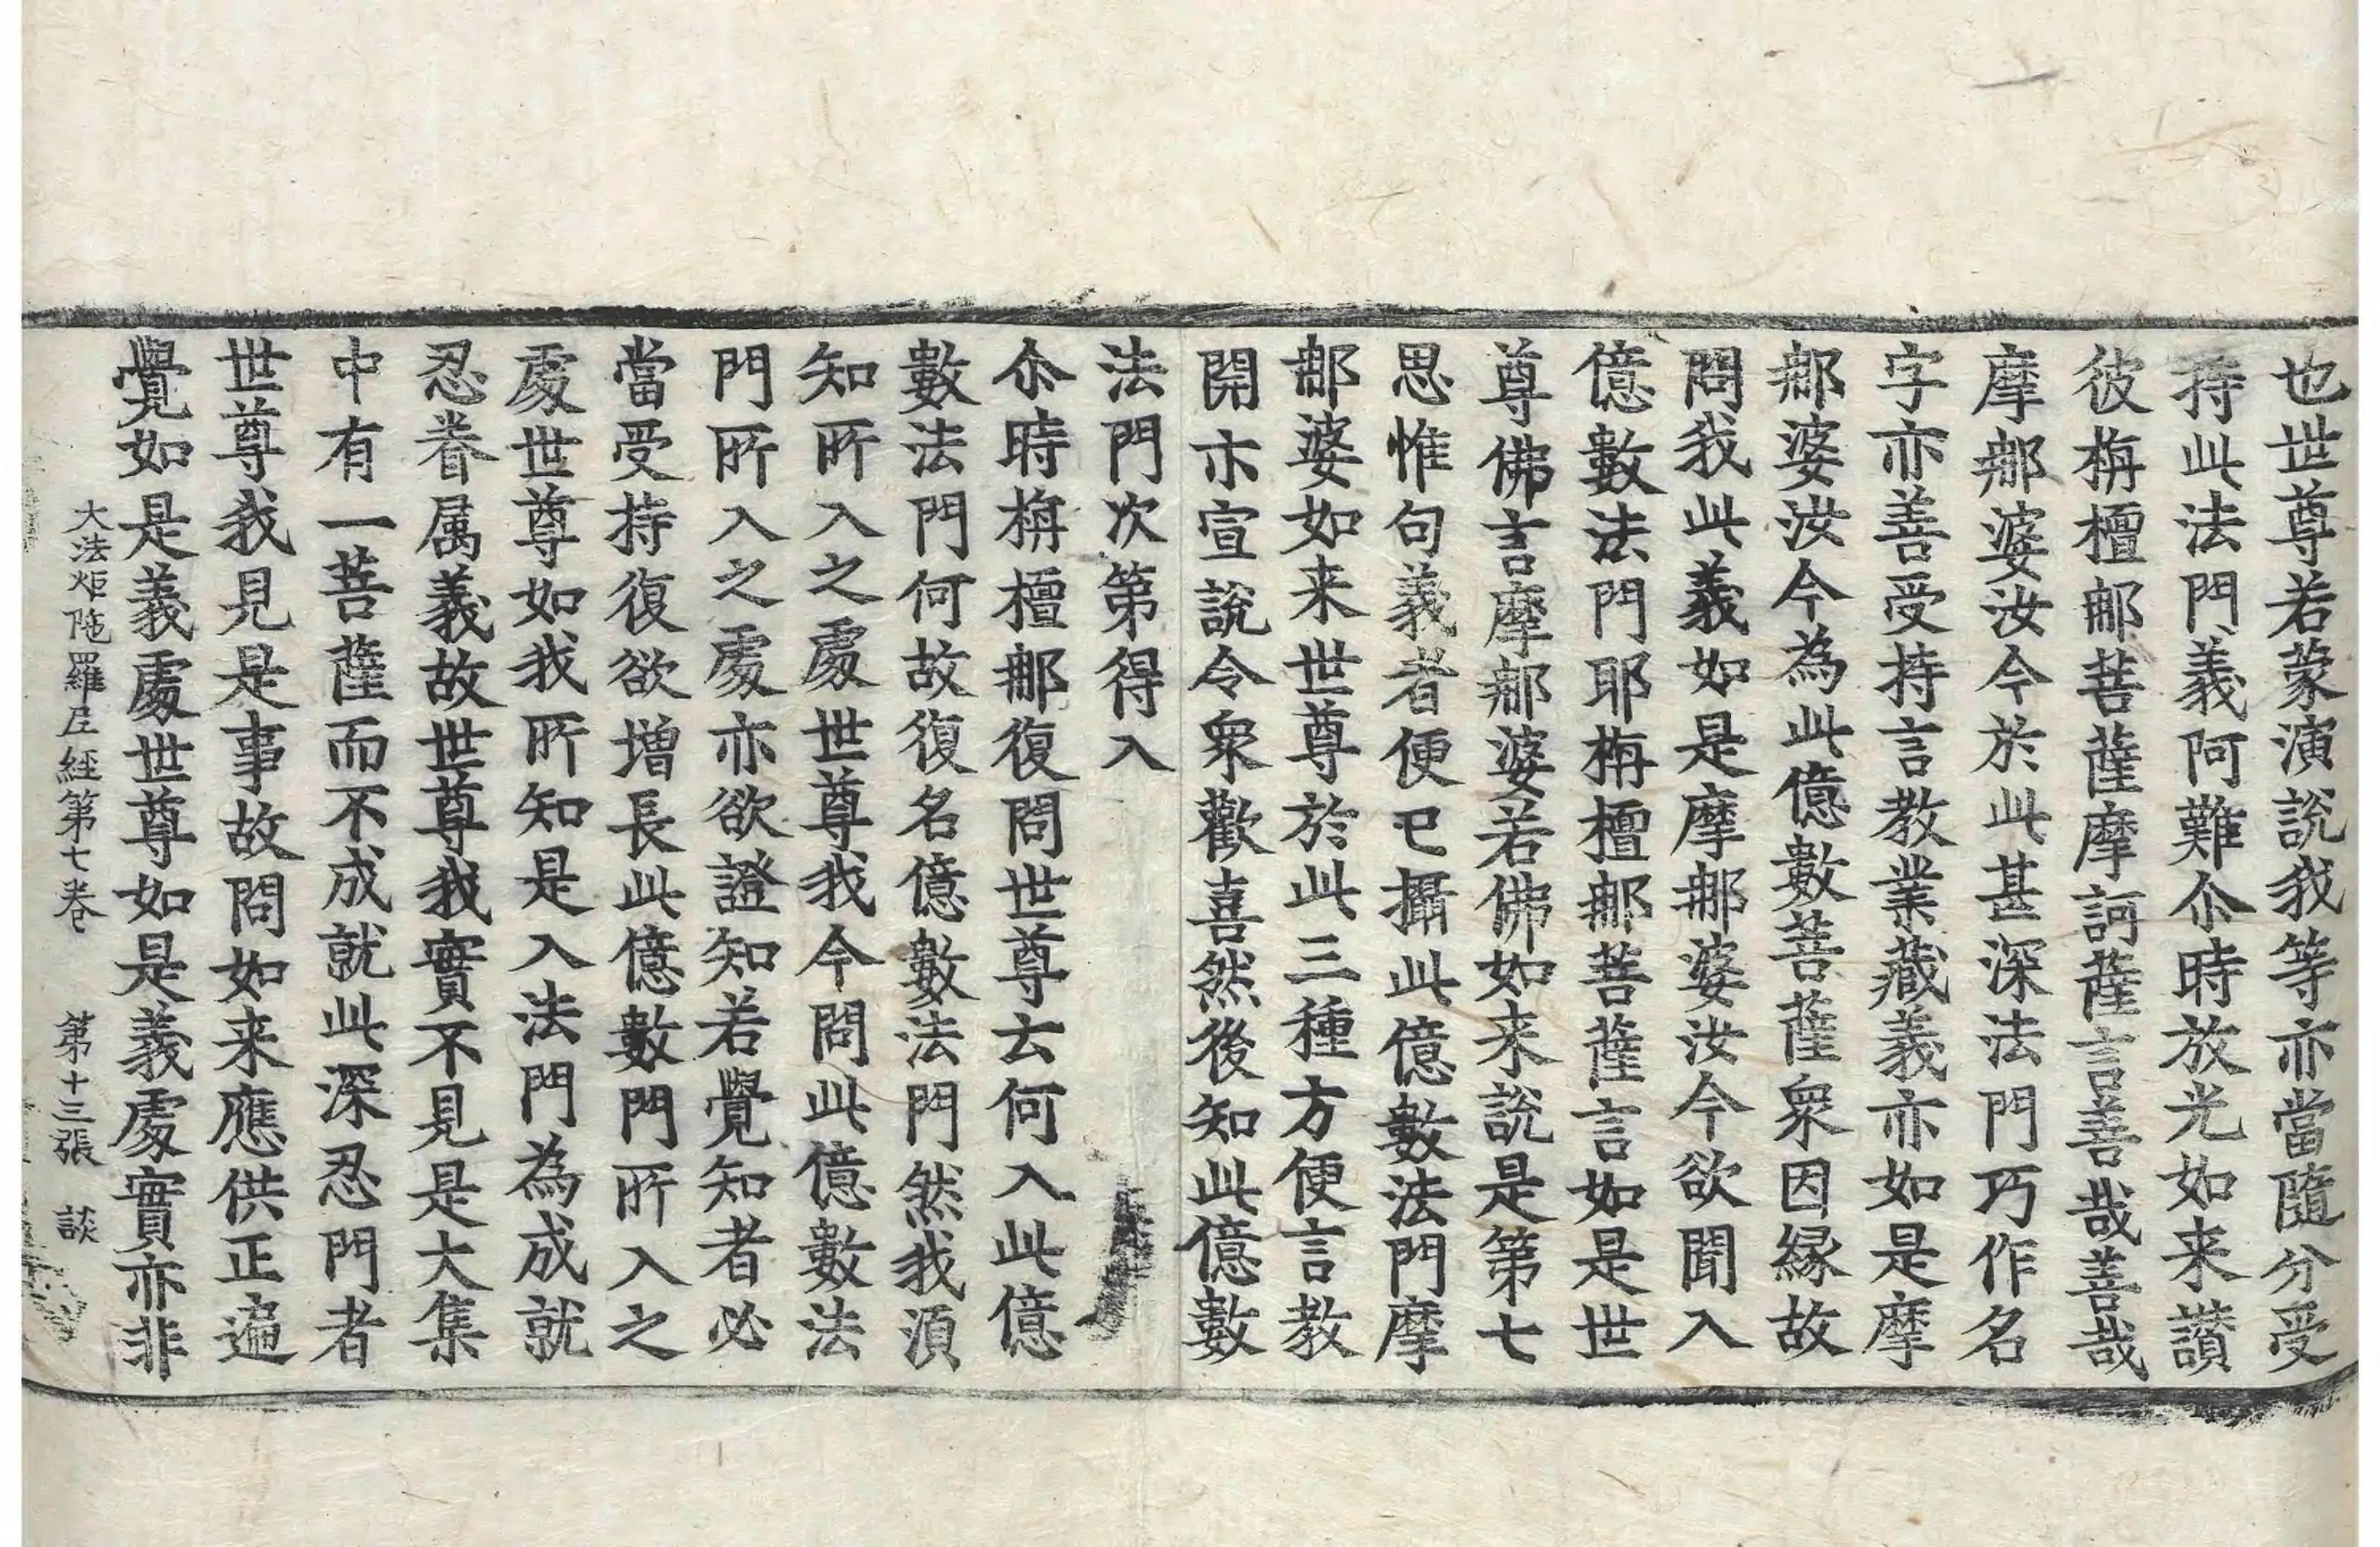 也世尊若蒙演説我等亦當隨分受
持此法門義阿難尒時放光如来讃
彼栴檀𨚗菩薩摩訶薩言善哉善哉
摩𨚗婆汝今於此甚深法門巧作名
字亦善受持言教業藏義亦如是摩
𨚗婆汝今為此億數菩薩衆因縁故
問我此義如是摩𨚗婆汝今欲聞入
億數法門耶栴檀𨚗菩薩言如是世
尊佛言摩𨚗婆若佛如来説是第七
思惟句義者便已攝此億數法門摩
𨚗婆如来世尊於此三種方便言教
開亦宣説令衆歡喜然後知此億數
法門次第得入
尒時栴檀𨚗復問世尊云何入此億
數法門何故復名億數法門然我湏
知所入之處世尊我今問此億數法
門所入之處亦欲證知若覺知者必
當受持復欲增長此億數門所入之
處世尊如我所知是入法門為成就
忍眷属義故世尊我實不見是大集
中有一菩薩而不成就此深忍門者
世尊我見是事故問如来應供正遍
覺如是義處世尊如是義處實亦非
大法炬陁羅尼經第七卷 第十三張 談